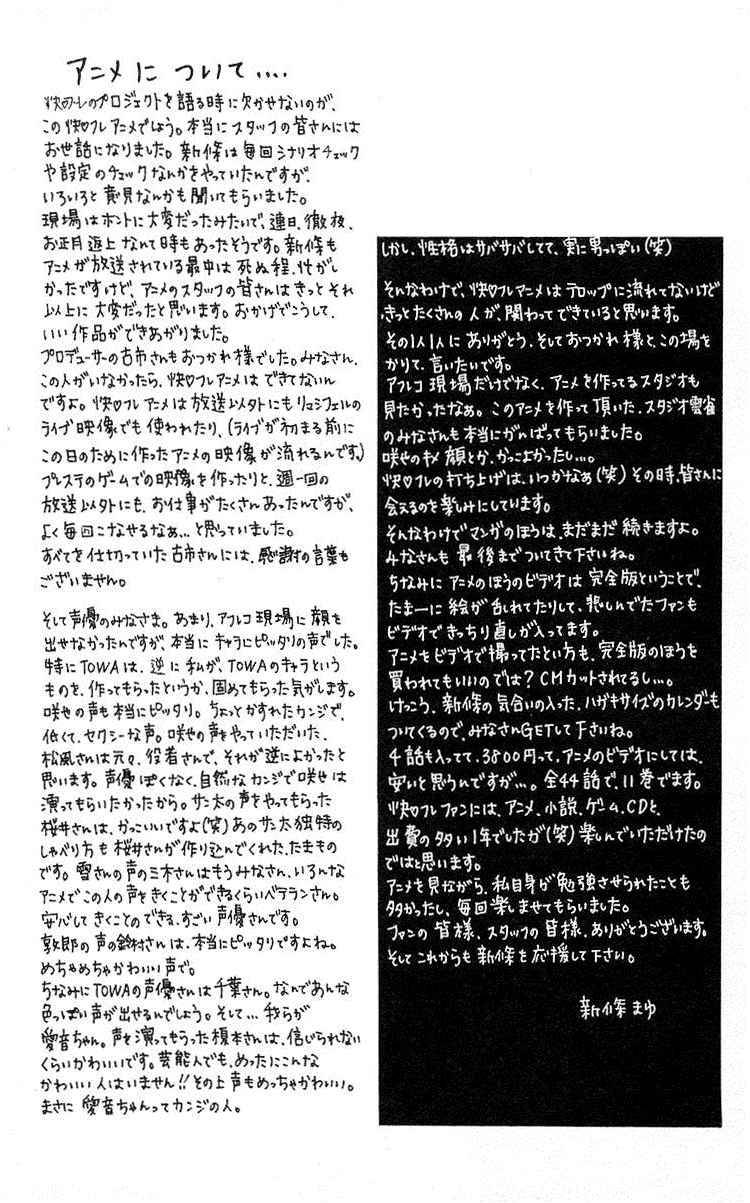 アニメに ついて....
快♡フレのプロジェクトを語る時に欠かせないのが、
この快♡フレアニメでしょう。本当にスタッフの皆さんには
お世話になりました。新條は毎回シナリオチェック
や設定のチェックなんかをやっていたんですが、
いろいろと意見なんかも聞いてもらいました。
現場はホントに大変だったみたいで、連日、徹夜、
お正月返上なんて時もあったそうです。新條も
アニメが放送されている最中は死ぬ程、忙がし
かったですけど、アニメのスタッフの皆さんはきっとそれ
以上に大変だったと思います。おかげでこうして、
いい作品ができあがりました。
プロデューサーの古市さんもおつかれ様でした。みなさん、
この人がいなかったら、快♡フレアニメはできてないん
ですよ。快♡フレアニメは放送以外にもリュシフェルの
ライブ映像でも使われたり、(ライブが初まる前に
この日のために作ったアニメの映像が流れるんです。)
プレステのゲームでの映像を作ったりと、週一回の
放送以外にも、お仕事がたくさんあったんですが、
よく毎回こなせるなぁ…と思っていました。
すべてを仕切っていた古市さんには、感謝の言葉も
ございません。
そして声優のみなさま。あまり、アフレコ現場に顔を
出せなかったんですが、本当にキャラにピッタリの声でした。
特にTOWAは、逆に私が、TOWAのキャラという
ものを、作ってもらったというか、固めてもらった気がします。
咲也の声も本当にピッタリ。ちょっとかすれたカンジで、
低くて、セクシーな声。咲也の声をやっていただいた、
松風さんは元々、役者さんで、それが逆によかったと
思います。声優ぽくなく、自然なカンジで咲也は
演ってもらいたかったから。サン太の声をやってもらった
桜井さんは、かっこいいですよ(笑)あのサン太独特の
しゃべり方も桜井さんが作り込んでくれた、たまもの
です。雪さんの声の三木さんはもうみなさん、いろんな
アニメでこの人の声をきくことができるくらいベテランさん。
安心してきくことのできる、すごい声優さんです。
敦郎の声の鈴村さんは、本当にピッタリですよね。
めちゃめちゃかわいい声で。
ちなみにTOWAの声優さんは千葉さん。なんであんな
色っぽい声が出せるんでしょう。そして…我らが
愛音ちゃん。声を演ってもらった榎本さんは、信じられない
くらいかわいいです。芸能人でも、めったにこんな
かわいい人はいません!!その上声もめっちゃかわいい。
まさに愛音ちゃんってカンジの人。
しかし、性格はサバサバしてて、実に男っぽい(笑)
そんなわけで、快♡フレアニメはテロップに流れてないけど
きっとたくさんの人が、関わってできていると思います。
その1人1人にありがとう、そしておつかれ様と、この場を
かりて、言いたいです。
アフレコ現場だけでなく、アニメを作ってるスタジオも
見たかったなぁ。このアニメを作って頂いた、スタジオ雲雀
のみなさんも本当にがんばってもらいました。
咲也のキメ顔とか、かっこよかったし…。
快♡フレの打ち上げは、いつかなぁ(笑)その時、皆さんに
会えるのを楽しみにしています。
そんなわけでマンガのほうは、まだまだ続きますよ。
みなさんも最後までついてきて下さいね。
ちなみにアニメのほうのビデオは完全版ということで、
たまーに絵が乱れてたりして、悲しんでたファンも
ビデオできっちり直しが入ってます。
アニメをビデオで撮ってたという方も、完全版のほうを
買われてもいいのでは?CMカットされてるし…。
けっこう、新條の気合いの入った、ハガキサイズのカレンダーも
ついてくるので、みなさんGETして下さいね。
4話も入ってて、3800円って、アニメのビデオにしては、
安いと思うんですが…。全44話で、11巻でます。
快♡フレファンには、アニメ、小説、ゲーム、CDと、
出費の多い1年でしたが(笑)楽しんでいただけたの
ではと思います。
アニメを見ながら、私自身が勉強させられたことも
多かったし、毎回楽しませてもらいました。
ファンの皆様、スタッフの皆様、ありがとうございます。
そしてこれからも新條を応援して下さい。
新條まゆ